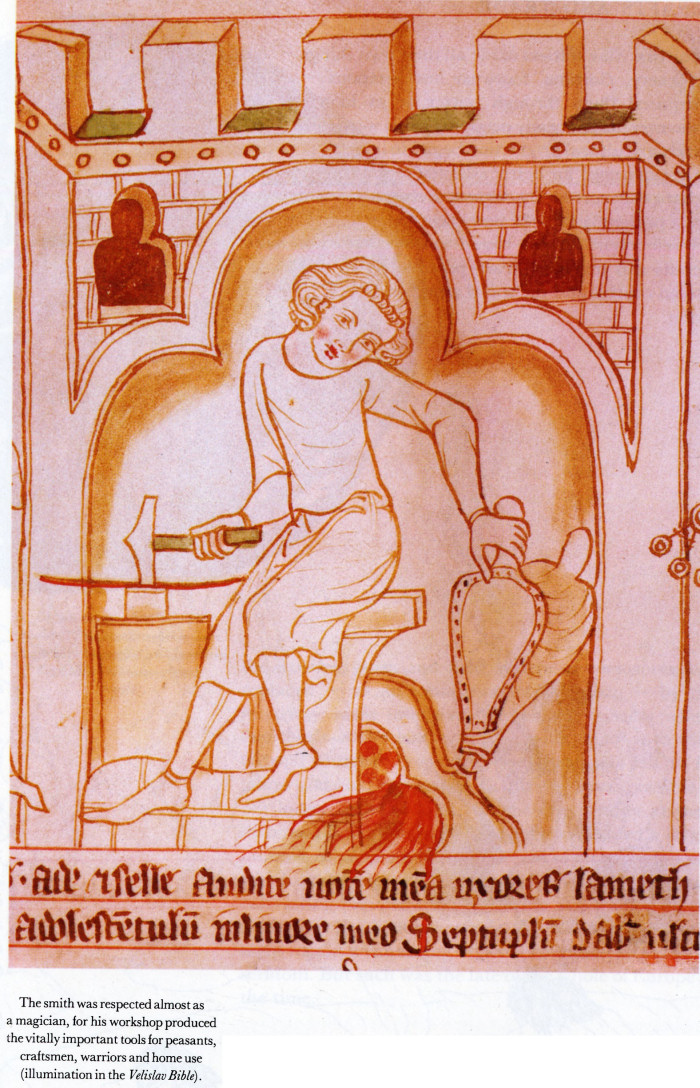 ade ⁊ selle audite uocē meā uxores lamech
adolescētulū in liuore meo Septuplū dab
The smith was respected almost as
a magician, for his workshop produced
the vitally important tools for peasants,
craftsmen, warriors and home use
(illumination in the Velislav Bible).